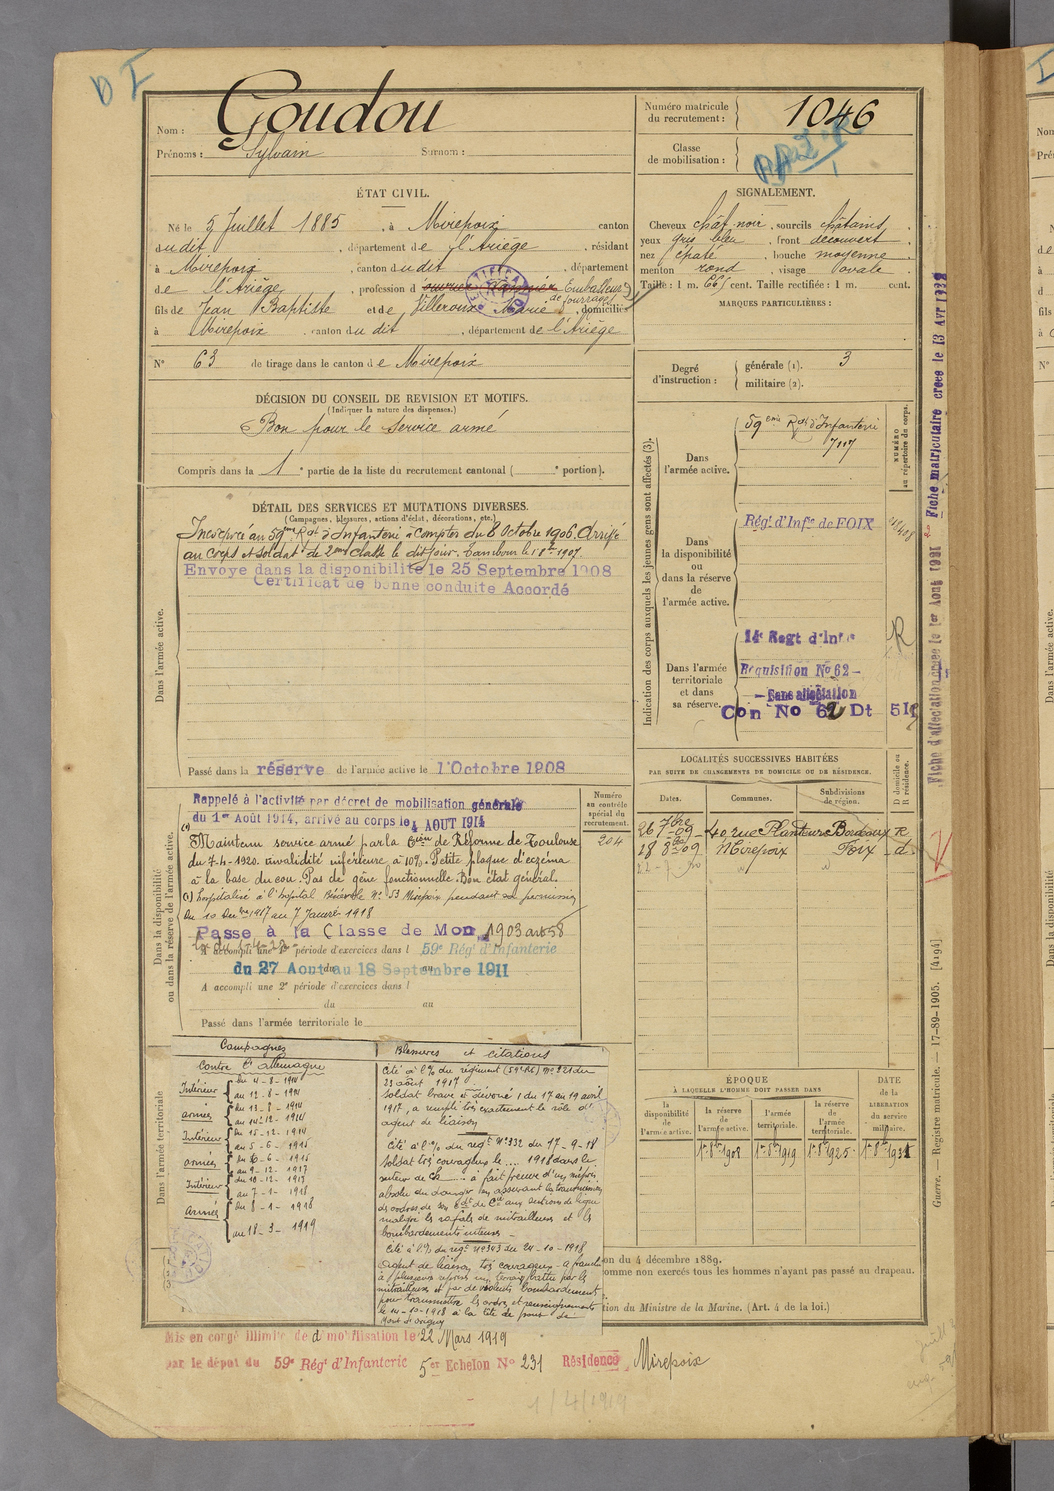 D I
Nom : Goudou
Prénoms : Sylvain Surnom :
Numéro matricule du recrutement : 1046
Classe de mobilisation :
ÉTAT CIVIL.
Né le 5 Juillet 1885 , à Mirepoix canton
dudit , département de l'Ariège , résidant
à Mirepoix , canton dudit , département
de l'Ariège , profession d Emballeur
de fourrages
fils de Jean Baptiste et de Villeroux Marie , domiciliés
à Mirepoix , canton du dit , département de l'Ariège
N° 63 de tirage dans le canton de Mirepoix
SIGNALEMENT.
Cheveux chât noir , sourcils châtains
yeux gris bleu , front découvert
nez , bouche moyenne
menton rond , visage ovale
Taille : 1 m. 665 cent. Taille rectifiée : 1 m. cent.
MARQUES PARTICULIÈRES :
Degré d'instruction : générale (1). 3
militaire (2).
DÉCISION DU CONSEIL DE REVISION ET MOTIFS.
(Indiquer la nature des dispenses.)
Bon pour le service armé
Compris dans la 1e partie de la liste du recrutement cantonal ( e portion).
DÉTAIL DES SERVICES ET MUTATIONS DIVERSES.
(Campagnes, blessures, actions d'éclat, décorations, etc.)
Dans l'armée active.
Incorporé au 59eme Rgt d'Infanterie à compter du 8 Octobre 1906. Arrivé
au corps et soldat de 2eme classe le dit jour. Tambour le 1907.
Envoye dans la disponibilité le 25 Septembre 1908
Certificat de bonne conduite Accordé
Passé dans la réserve de l'armée active le 1 Octobre 1908
Indication des corps auxquels les jeunes gens sont affectés (3).
NUMÉRO au répertoire du corps.
Dans l'armée active.
59eme Rgt d'Infanterie
Dans la disponibilité ou dans la réserve de l'armée active.
Régt d'Infie de FOIX
Dans l'armée territoriale et dans sa réserve.
14e Regt d'Infie
R
Requisition No 62 -
- Sans affectation
Con No 62 Dt 511
Fiche d'affectation créée le 1er Aout 1921
Fiche matriculaire créée le 13 Avr 1922
LOCALITÉS SUCCESSIVES HABITÉES
PAR SUITE DE CHANGEMENTS DE DOMICILE OU DE RÉSIDENCE.
Dates. Communes. Subdivisions de région. D domicile ou R résidence.
26 7bre 09 40 rue Planteurs Bordeaux R
18 8bre 09 Mirepoix Foix d
Dans la disponibilité ou dans la réserve de l'armée active.
Numéro au contrôle spécial du recrutement.
204
Rappelé à l'activité par décret de mobilisation générale
du 1er Août 1914, arrivé au corps le 4 AOUT 1914
Maintenu service armé par la Cion de Réforme de Toulouse
du 7-4-1920. invalidité inférieure à 10%. Petite plaque d'eczéma
à la base du cou. Pas de gêne fonctionnelle. Bon état général.
(1) Hospitalisé à l'hopital Bénévole N° 53 Mirepoix pendant sa permission
du 10 1917 au 7 Janvier 1918
Passe à la Classe de Mon 1903 art 58
A accompli une 1re période d'exercices dans l 59e Régt d'Infanterie
du 27 Aout au 18 Septembre 1911
A accompli une 2e période d'exercices dans l
du au
Passé dans l'armée territoriale le
Dans l'armée territoriale
Campagnes
Contre l'allemagne
Intérieur du 4-8-1914
au 12-8-1914
armées du 13-8-1914
au 14-12-1914
Intérieur du 15-12-1914
au 5-6-1915
armées du 6-6-1915
au 9-12-1917
Intérieur du 10-12-1917
au 7-1-1918
armées du 8-1-1918
au 18-3-1919
Blessures et citations
Cité à l'O. du régiment (59e RI) N° 221 du
23 août 1917
Soldat brave et dévoué, du 17 au 19 avril
1917, a rempli très exactement le rôle d'
agent de liaison
Cité à l'O. du regt N° 332 du 17-9-18
Soldat très courageux le ... 1918 dans le
secteur de Ch... a fait preuve d'un mépris
absolu du danger en assurant la transmission
des ordres de son Cdt de Cie aux sections de ligne
malgré les rafales de mitrailleuses et les
bombardements intenses -
Cité à l'O. du regt N° 343 du 24-10-1918
Agent de liaison très courageux - a franchi
à plusieurs reprises un terrain battu par les
mitrailleuses et par de violents bombardements
pour transmettre les ordres et renseignements
le 14-10-1918 à la tête de pont de
Mont d'Origny
ÉPOQUE
À LAQUELLE L'HOMME DOIT PASSER DANS
la disponibilité de l'armée active. la réserve de l'armée active. l'armée territoriale. la réserve de l'armée territoriale.
DATE de la LIBÉRATION du service militaire.
1er 8bre 1908 1er 8bre 1919 1er 8bre 1925 1er 8bre 1931
on du 4 décembre 1889.
omme non exercés tous les hommes n'ayant pas passé au drapeau.
tion du Ministre de la Marine. (Art. 4 de la loi.)
Guerre. — Registre matricule. — 17-89-1905. [4194]
Mis en congé illimité de démobilisation le 22 Mars 1919
par le dépot du 59e Régt d'Infanterie 5er Echelon No 231 Résidence Mirepoix
1/4/1919